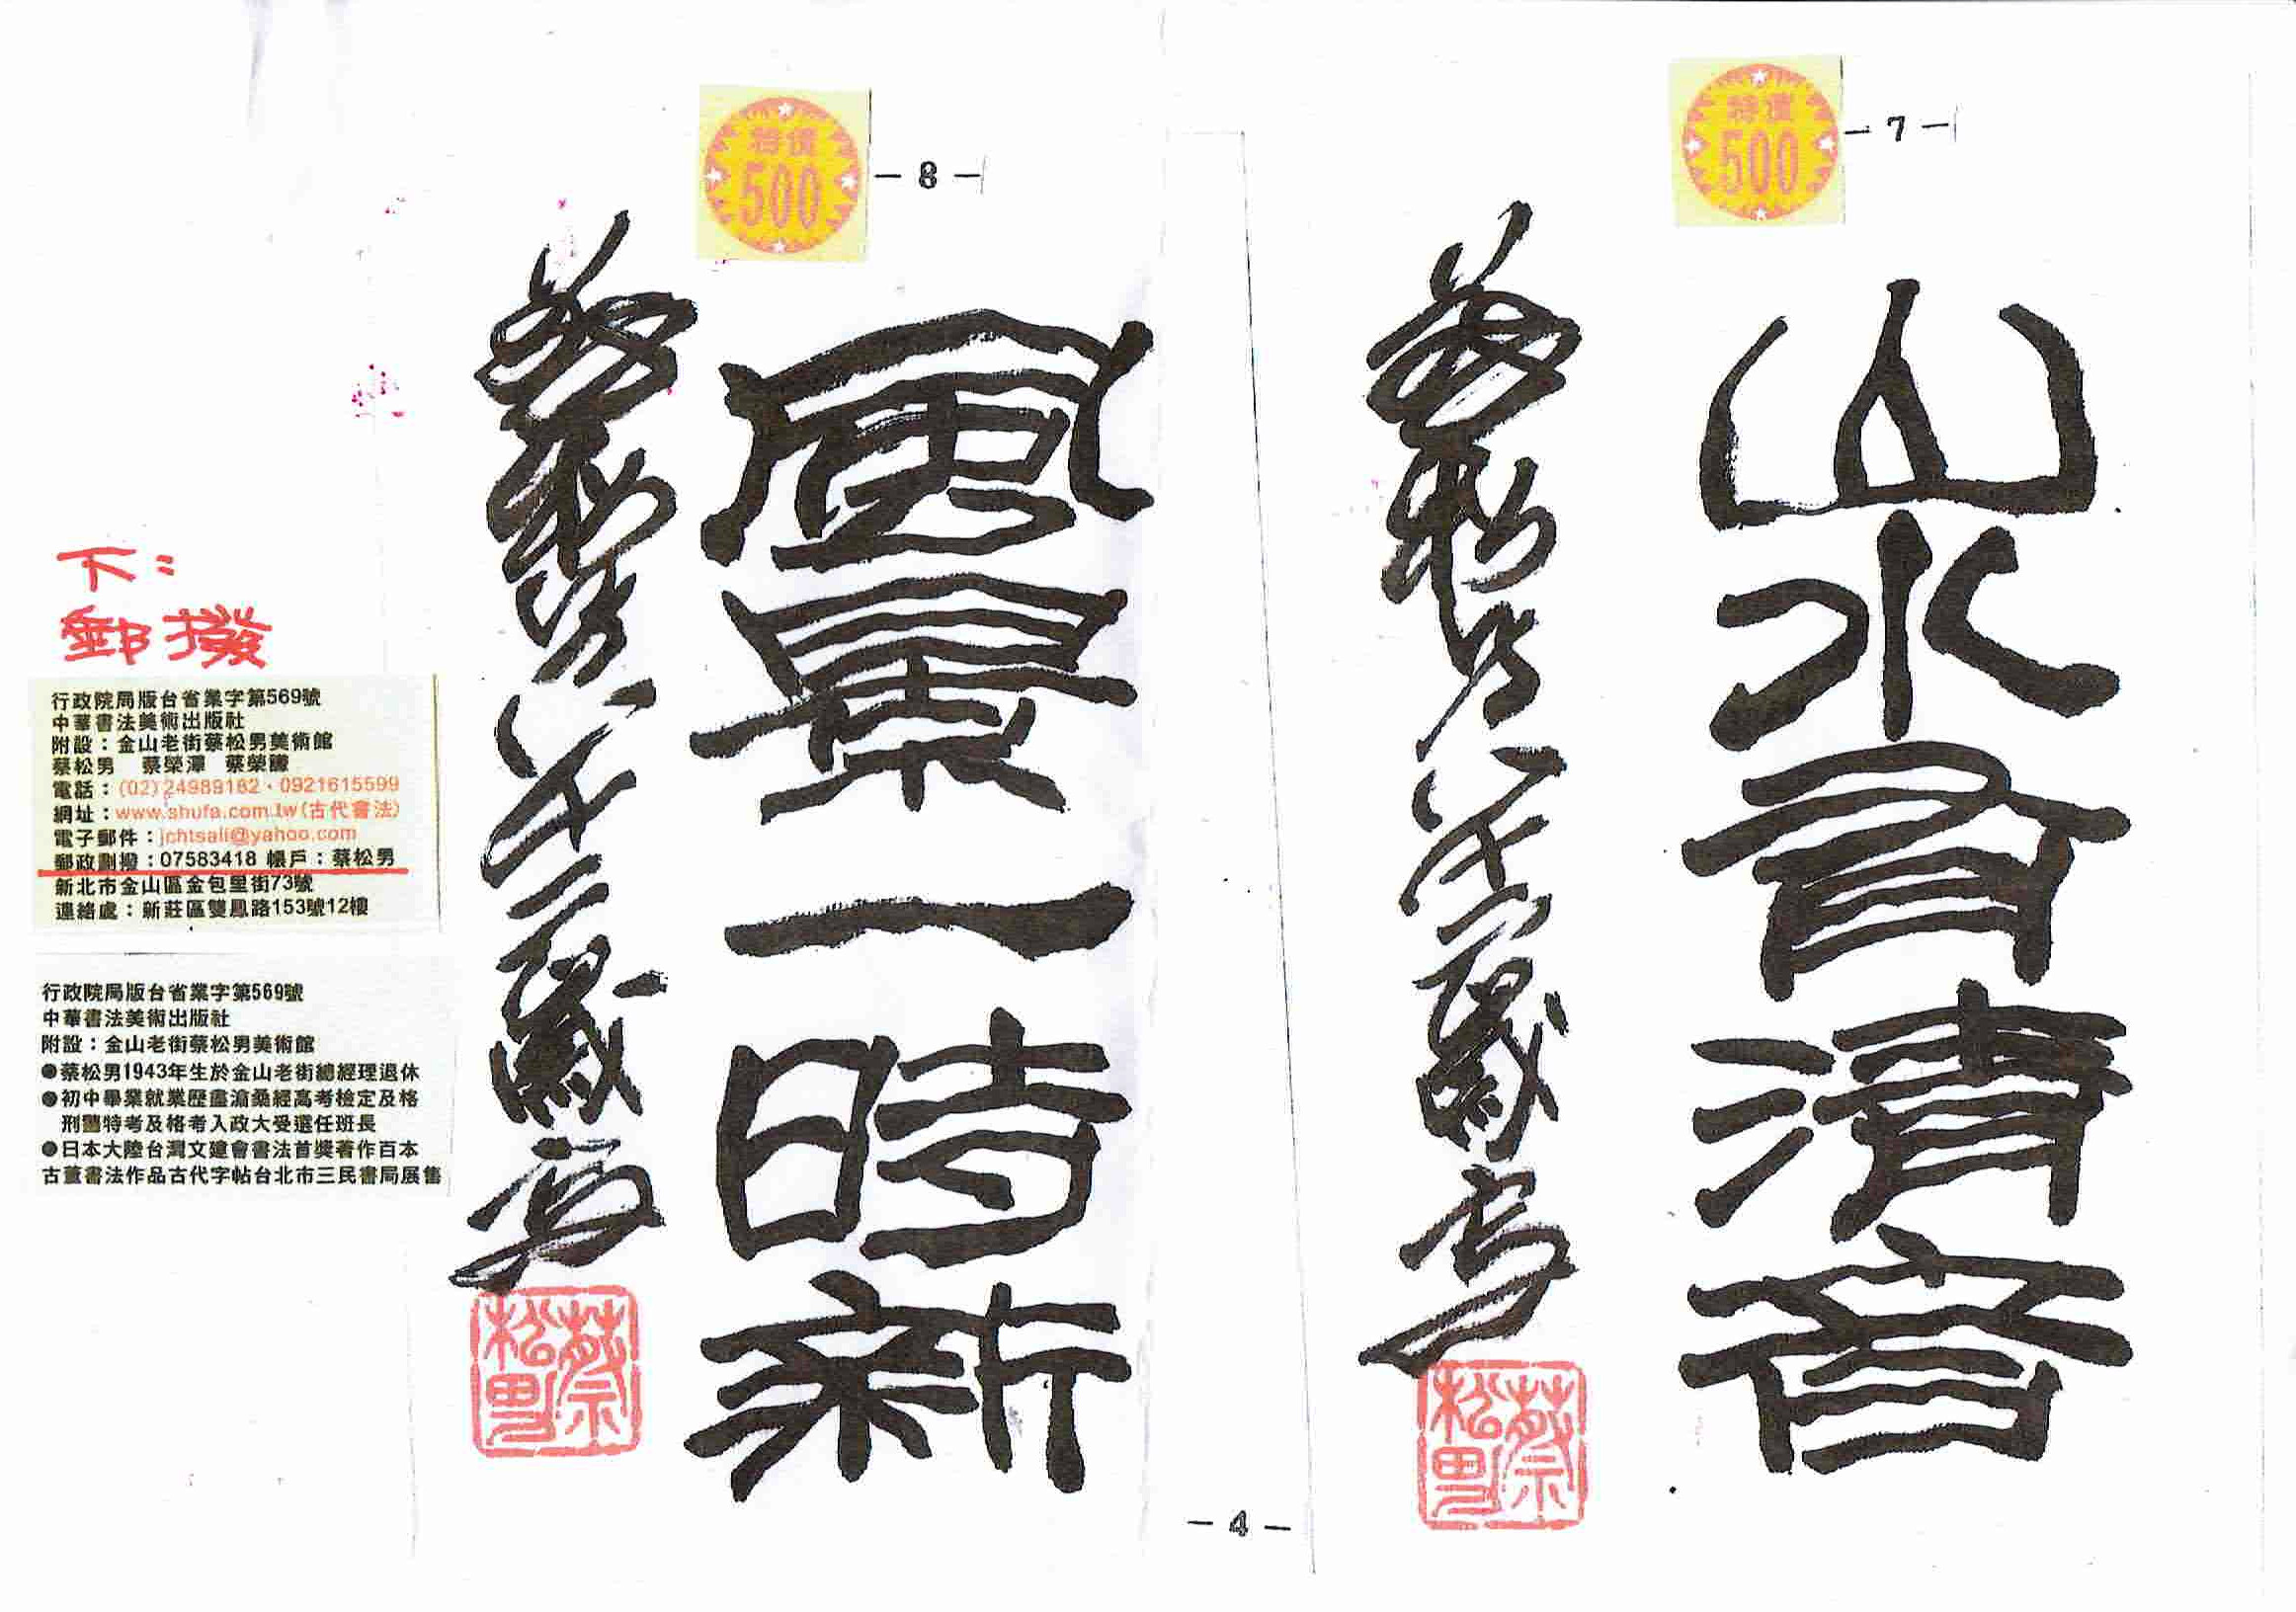 -7-
特價
500
山水有清音
蔡松男八十二歲書
蔡松男
-8-
特價
500
風景一時新
蔡松男八十二歲書
蔡松男
下:
郵撥
行政院局版台省業字第569號
中華書法美術出版社
附設：金山老街蔡松男美術館
蔡松男 蔡榮澤 蔡榮騰
電話：(02)24989162·0921615599
網址：www.shufa.com.tw(古代書法)
電子郵件：jchtsali@yahoo.com
郵政劃撥：07583418 帳戶：蔡松男
新北市金山區金包里街73號
連絡處：新莊區雙鳳路153號12樓
行政院局版台省業字第569號
中華書法美術出版社
附設：金山老街蔡松男美術館
●蔡松男1943年生於金山老街總經理退休
●初中畢業就業歷盡滄桑經高考檢定及格
刑警特考及格考入政大受選任班長
●日本大陸台灣文建會書法首獎著作百本
古董書法作品古代字帖台北市三民書局展售
-4-